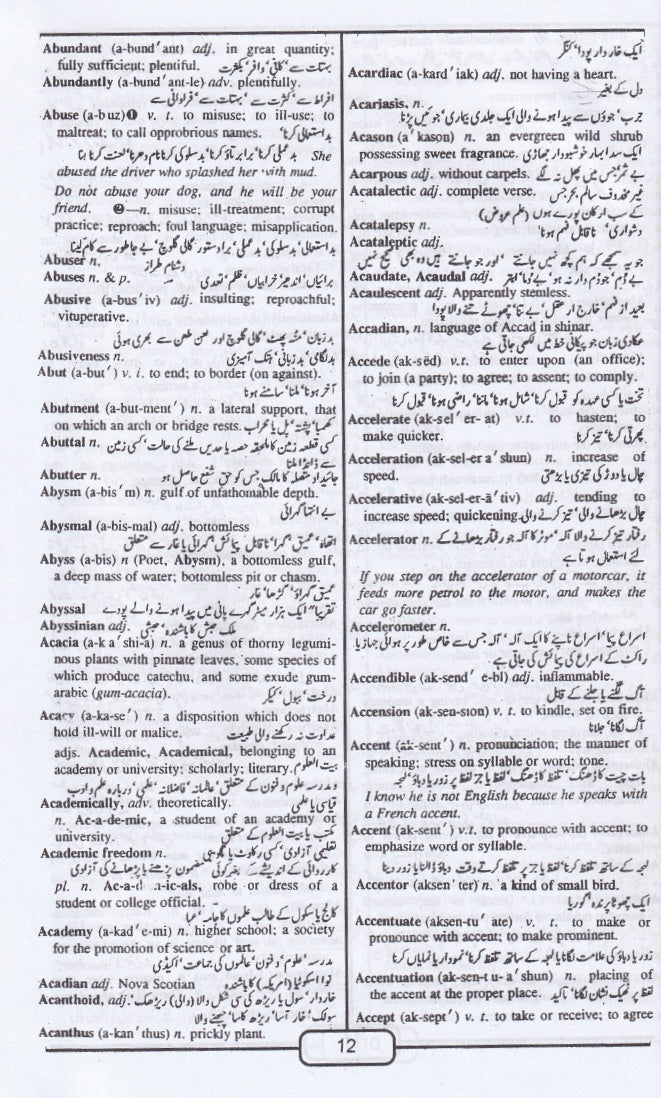 Abundant (a-bund′ant) adj. in great quantity;
fully sufficient; plentiful. بہتات سے، کافی، وافر، بکثرت
Abundantly (a-bund′ant-le) adv. plentifully.
افراط سے، کثرت سے، بہتات سے، فراوانی سے
Abuse (a-b uz)❶ v. t. to misuse; to ill-use; to
maltreat; to call opprobrious names. بداستعمالی کرنا
بدعملی کرنا، برا برتاؤ کرنا، بدسلوکی کرنا، نام دھرنا، لعنت کرنا She
abused the driver who splashed her with mud.
Do not abuse your dog, and he will be your
friend. ❷—n. misuse; ill-treatment; corrupt
practice; reproach; foul language; misapplication.
بداستعمالی، بدسلوکی، بدعملی، برا دستور، گالی گلوچ، بے جا طور سے کام لینا
Abuser n. دشنام طراز
Abuses n. & p. برائیاں، اندھیر، خرابیاں، ظلم، تعدی
Abusive (a-bus′iv) adj. insulting; reproachful;
vituperative.
بدزبان، منہ پھٹ، گالی گلوچ اور لعن طعن سے بھری ہوئی
Abusiveness n. بدلگامی، بدزبانی، ہتک آمیزی
Abut (a-but′) v. i. to end; to border (on against).
آخر ہونا، ملنا، سامنے ہونا
Abutment (a-but-ment′) n. a lateral support, that
on which an arch or bridge rests. کھمبا، پشتہ، پل یا محراب
Abuttal n. کسی قطعہ زمین کا ملحقہ حصہ یا حدیں ملنے کی حالت، کسی زمین
سے ڈانڈا ملنا
Abutter n. جائیداد متصلہ کا مالک جس کو حق شفع حاصل ہو
Abysm (a-bis′m) n. gulf of unfathomable depth.
بے انتہا گہرائی
Abysmal (a-bis-mal) adj. bottomless
اتھاہ، عمیق، گہرا، ناقابل پیمائش گہرائی یا غار سے متعلق
Abyss (a-bis) n (Poet, Abysm), a bottomless gulf,
a deep mass of water; bottomless pit or chasm.
عمیق گہراؤ، گڑھا، غار
Abyssal تقریباً ایک ہزار میٹر گہرے پانی میں پیدا ہونے والے پودے
Abyssinian adj. ملک حبش کا باشندہ، حبشی
Acacia (a-k a′shi-a) n. a genus of thorny legumi-
nous plants with pinnate leaves, some species of
which produce catechu, and some exude gum-
arabic (gum-acacia). درخت، ببول، کیکر
Acacy (a-ka-se′) n. a disposition which does not
hold ill-will or malice. عداوت نہ رکھنے والی طبیعت
adjs. Academic, Academical, belonging to an
academy or university; scholarly; literary. بیت العلوم
و مدرسہ علوم و فنون کے متعلق، عالمانہ، فاضلانہ، علمی، دربارہ علم و ادب
Academically, adv. theoretically. قیاسی یا علمی
n. Ac-a-de-mic, a student of an academy or
university. مکتب یا بیت العلوم کے متعلق
Academic freedom n. تعلیمی آزادی، کسی رکاوٹ یا
کارروائی کے اندیشے بغیر کوئی مضمون پڑھنے یا پڑھانے کی آزادی
pl. n. Ac-a-d n-ic-als, robe or dress of a
student or college official. –
کالج یا سکول کے طالب علموں کا جامہ
Academy (a-kad′e-mi) n. higher school; a society
for the promotion of science or art.
مدرسہ، علوم و فنون، عالموں کی جماعت، اکیڈمی
Acadian adj. Nova Scotian نووا سکوٹیا (امریکہ) کا باشندہ
Acanthoid, adj. خاردار، سول یا ریڑھ کی سی شکل والا (والی) ریڑھ
سولک، خار آسا، ریڑھ کا سا، چبھنے والا
Acanthus (a-kan′thus) n. prickly plant.
ایک خار دار پودا،
Acardiac (a-kard′iak) adj. not having a heart.
دل کے بغیر
Acariasis, n.
جرب، جوؤں سے پیدا ہونے والی ایک جلدی بیماری، جوئیں پڑنا
Acason (a′kason) n. an evergreen wild shrub
possessing sweet fragrance. ایک سدا بہار خوشبودار جھاڑی
Acarpous adj. without carpels. بے ثمر جس میں پھل نہ لگے
Acatalectic adj. complete verse. غیر محذوف سالم، بحر جس
کے سب ارکان پورے ہوں (علم عروض)
Acatalepsy n. دشواری، ناقابل فہم ہونا
Acataleptic adj.
جو یہ سمجھے کہ ہم کچھ نہیں جانتے، اور جو جانتے ہیں وہ بھی صحیح نہیں
Acaudate, Acaudal adj. بے دم، جو دم دار نہ ہو،
Acaulescent adj. Apparently stemless.
بعید از فہم، خارج از عقل، بے تنا، چھوٹے تنے والا پودا
Accadian, n. language of Accad in shinar.
عکادی زبان جو پیکانی خط میں لکھی جاتی ہے
Accede (ak-sēd) v.t. to enter upon (an office);
to join (a party); to agree; to assent; to comply.
تخت یا کسی عہدہ کو قبول کرنا، شامل ہونا، ماننا، راضی ہونا، قبول کرنا
Accelerate (ak-sel′er- at) v.t. to hasten; to
make quicker. پھرتی کرنا، تیز کرنا
Acceleration (ak-sel-er a′shun) n. increase of
speed. چال یا دوڑ کی تیزی یا بڑھتی
Accelerative (ak-sel-er-ā′tiv) adj. tending to
increase speed; quickening. چال بڑھانے والی، تیز کرنے والی
Accelerator n. رفتار تیز کرنے والا آلہ، موٹر کا آلہ جو رفتار بڑھانے کے
لئے استعمال ہوتا ہے
If you step on the accelerator of a motorcar, it
feeds more petrol to the motor, and makes the
car go faster.
Accelerometer n.
اسراع پیما، اسراع ناپنے کا ایک آلہ، آلہ جس سے خاص طور پر ہوائی جہاز یا
راکٹ کے اسراع کی پیمائش کی جاتی ہے
Accendible (ak-send′e-bl) adj. inflammable.
آگ لگنے یا جلنے کے قابل
Accension (ak-sen-sion) v. t. to kindle, set on fire.
آگ لگانا، جلانا
Accent (ak-sent′) n. pronunciation; the manner of
speaking; stress on syllable or word; tone.
بات چیت کا ڈھنگ، تلفظ کا ڈھنگ، لفظ یا جز لفظ پر زور یا دباؤ، لہجہ
I know he is not English because he speaks with
a French accent.
Accent (ak-sent′) v.t. to pronounce with accent; to
emphasize word or syllable.
لہجہ کے ساتھ تلفظ کرنا، لفظ یا جز پر تلفظ کرتے وقت دباؤ ڈالنا یا زور دینا
Accentor (aksen′ter) n. a kind of small bird.
ایک چھوٹا پرندہ، گوریا
Accentuate (aksen-tu′ate) v. t. to make or
pronounce with accent; to make prominent.
زور یا دباؤ کی علامت لگانا یا لہجہ کے ساتھ تلفظ کرنا، نمودار یا نمایاں کرنا
Accentuation (ak-sen-t u- a′shun) n. placing of
the accent at the proper place. لفظ پر ٹھیک نشان لگانا، تاکید
Accept (ak-sept′) v. t. to take or receive; to agree
12